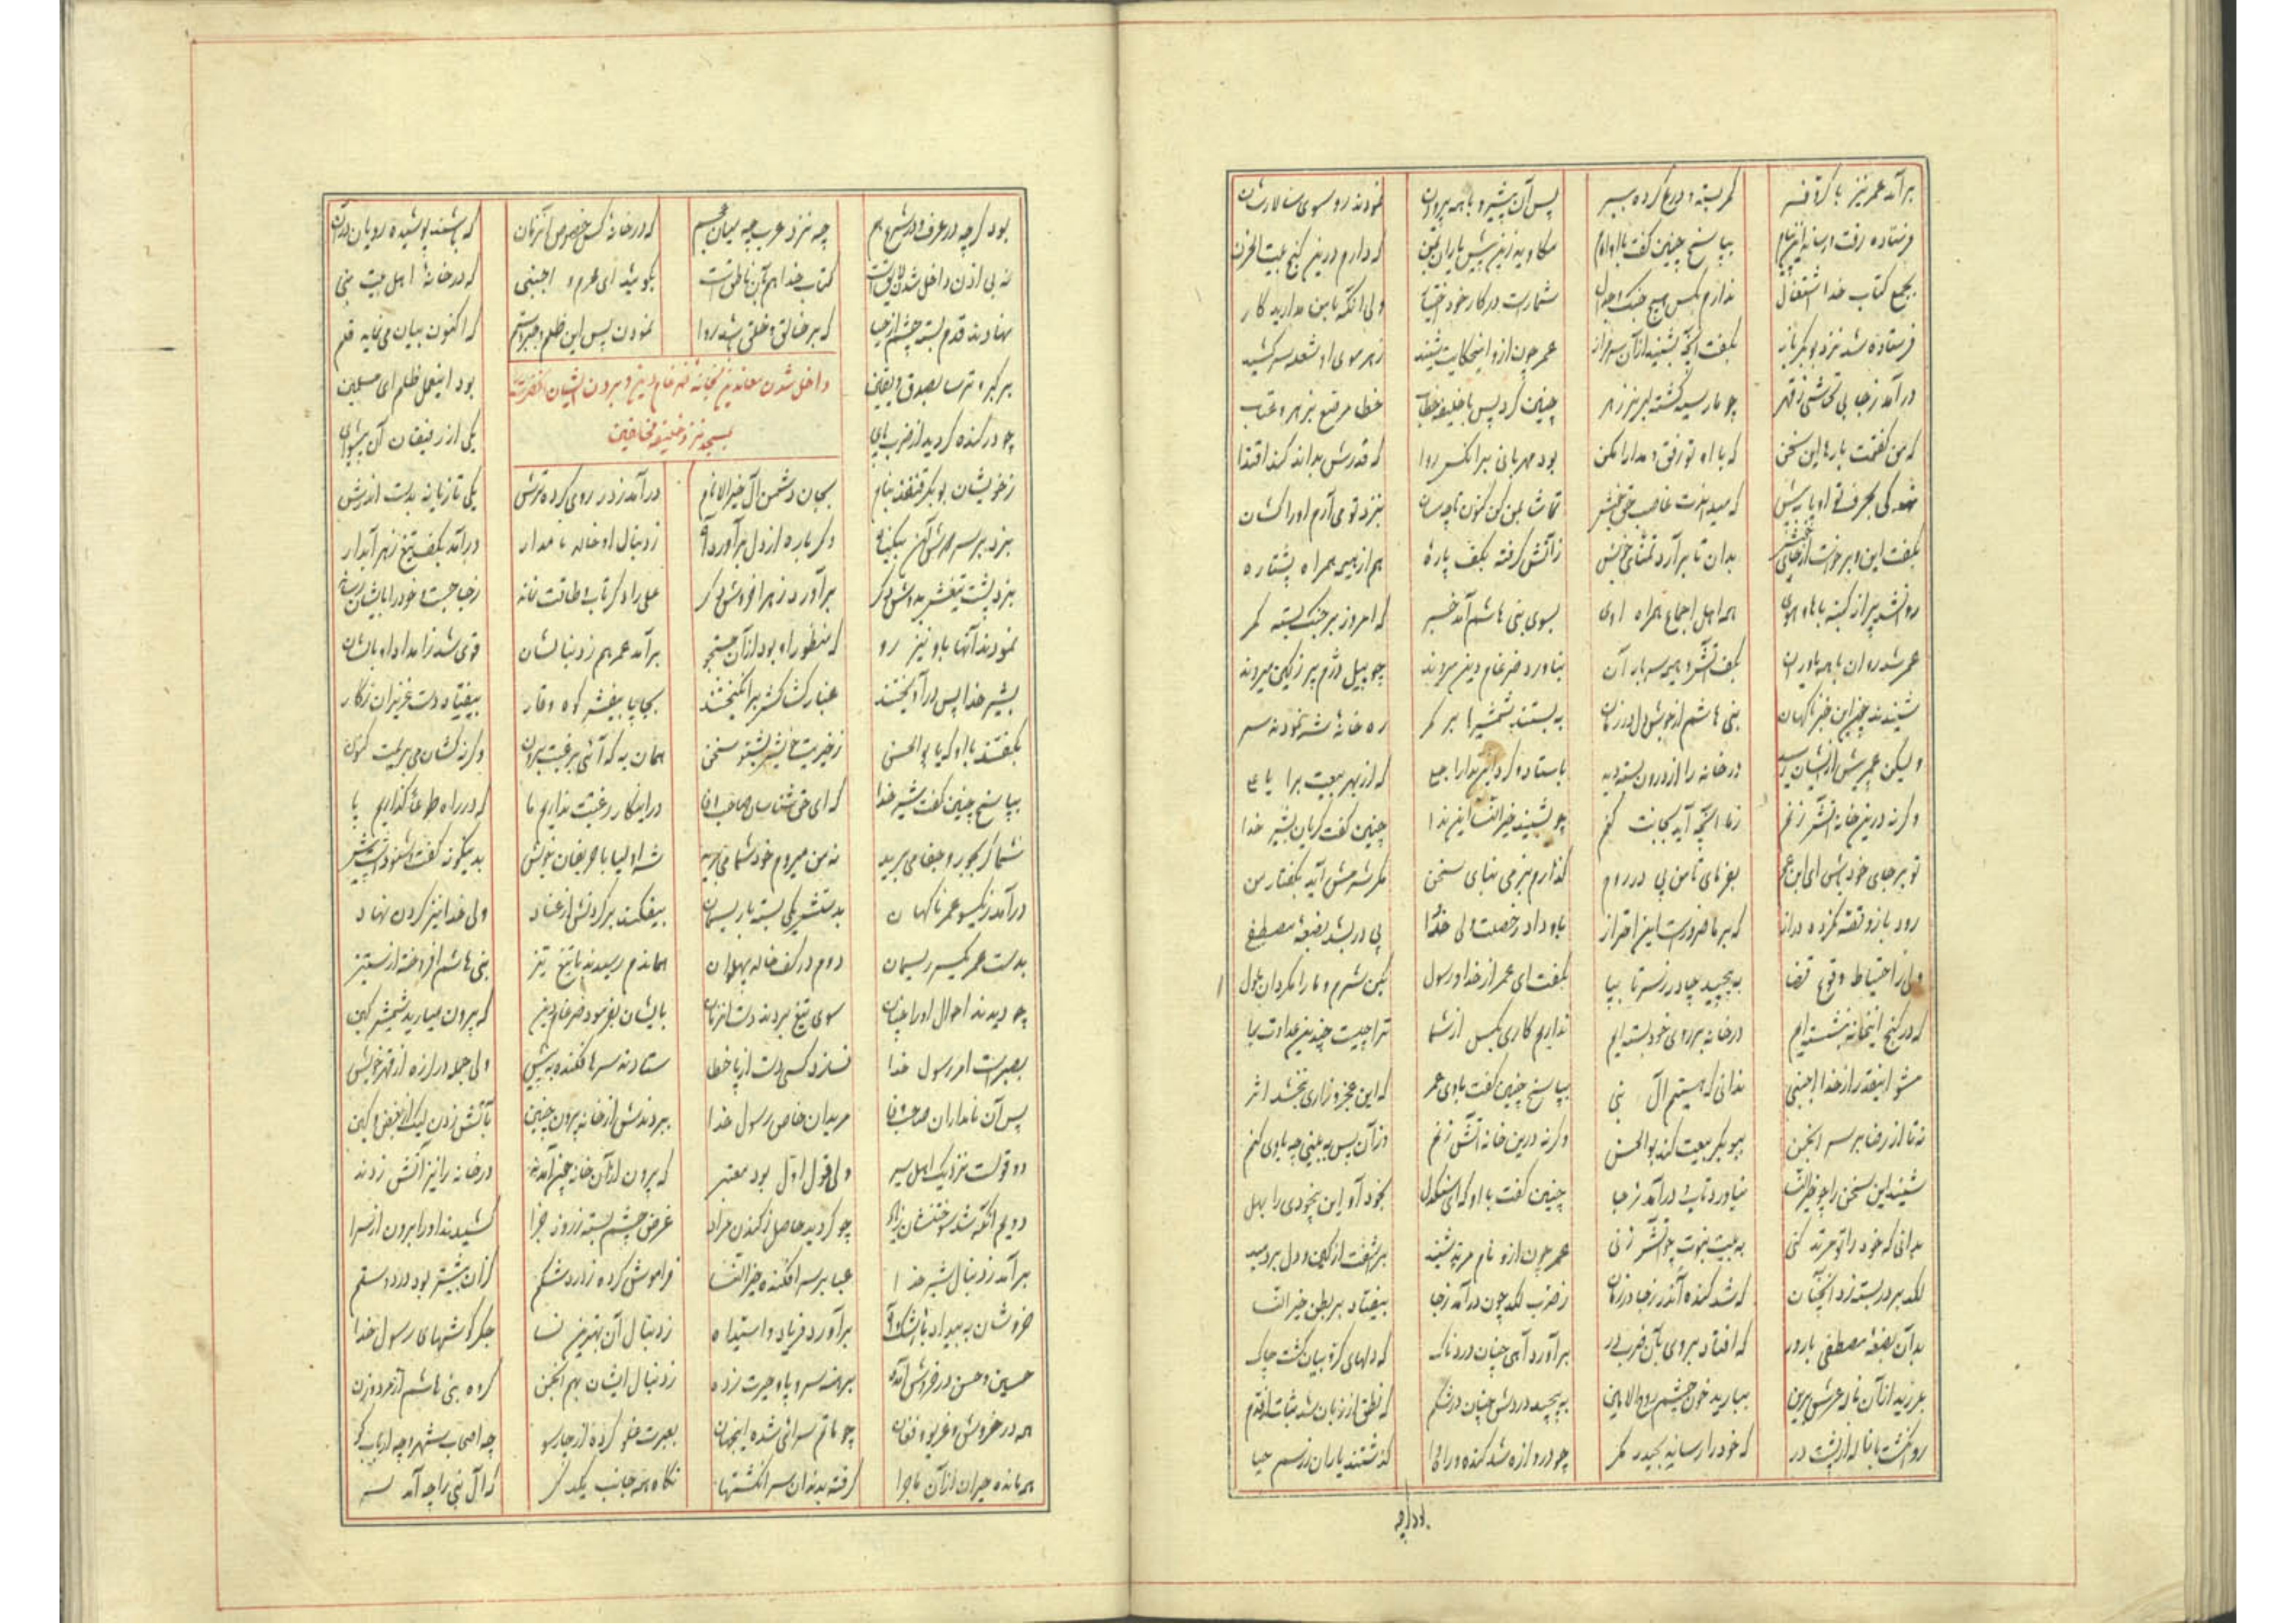 برآمد عمر نیز با کر و فر کمر بسته و درع کرده ببر پس آن پیشرو با همه پیروان نمودند رو سوی سالارشان
فرستاده رفت و رسانید پیام بپاسخ چنین گفت با او امام مکاوید زین پیش یاران من که دارم درین کنج بیت الحزن
بجمع کتاب خدا اشتغال ندارم بکس هیچ جنگ و جدال شماراست در کار خود اختیار ولی آنکه با من مدارید کار
فرستاده شد نزد بوبکر باز بگفت آنچه بشنید از آن سرفراز عمر چون ازو این حکایت شنید ز هر موی او شعله سر کشید
درآمد ز جا بی تحاشی ز قهر چو مار سیه گشته لبریز زهر چنین کرد پس با خلیفه خطاب خطا مرتفع بزهر و عتاب
که من گفتمت بارها این سخن که با او تو رفق و مدارا مکن بود مهربانی بر آنکس روا که قدرش بداند کند اقتدا
تماشا بمن کن کنون تا چه سان بنزد تو می آرم او را کشان
بگفت این و برخواست از جای خویش بدان تا برآرد تمنای خویش ز آتش گرفته بکف پاره هم از هیمه همراه پشتاره
روان شد پر از کینه با های و هوی همه اهل اجماع همراه اوی بسوی بنی هاشم آمد خبر که امروز بر جنگ بسته کمر
عمر شد روان با همه یاوران بکف آتش و هیمه سر بار آن بناورد ضرغام دین میروند چو پیل دژم پر ز کین میروند
شنیدند چون این خبر ناگهان بنی هاشم از جوش دل در زمان ببستند شمشیرها بر کمر ره خانه شه نمودند سر
ولیکن عمر پیش از ایشان رسید در خانه را از درون بسته دید باستاد و کرد این ندا را بجد که از بهر بیعت برا یا علی
وگرنه درین خانه آتش زنم ز ما آنچه آید بجانت کنم چو بشنید خیر النسا این ندا چنین گفت گریان بشیر خدا
تو بر جای خود باش ای ابن عم بفرمای تا من پی در روم گذارم بنرمی بنای سخن مگر شرمش آید بگفتار من
رود باز و فتنه نگردد دراز که بر ما ضرور است این احتراز باو داد رخصت ولی خدا پی در بشد بضعه مصطفی
ولی از احتیاط وقوع قضا بپیچید چادر ز سر تا بپا بگفت ای عمر از خدا و رسول بکن شرم و ما را مگردان ملول
که در کنج این خانه بنشسته ایم در خانه بر روی خود بسته ایم نداریم کاری بکس از شما ترا چیست چندین عداوت بما
مشو اینقدر از خدا اجنبی ندانی که هستیم آل نبی بپاسخ چنین گفت با وی عمر که این عجز و زاری نبخشد اثر
نه تا از رضا بر سر انجمن ببوبکر بیعت کند بوالحسن وگرنه درین خانه آتش زنم وزان پس ببینی چه با وی کنم
شنید این سخن را چو خیر النسا نیاورد تاب و درآمد ز جا چنین گفت با او که ای سنگدل بخود آ و این بیخودی را بهل
بدانی که خود را تو مرتد کنی به بیت نبوت چو آتش زنی عمر چون ازو نام مرتد شنید برآشفت از کین و دل بردمید
لگد بر در بسته زد آنچنان که شد کنده آن در ز جا در زمان ز ضرب لگد چون درآمد ز جا بیفتاد بر بطن خیر النسا
بدان بضعه مصطفی بارور که افتاد بر وی بآن ضرب در برآورد آهی چنان دردناک که دلهای کروبیان گشت چاک
بلرزید از آن ناله عرش برین ببارید خون چشم روح الامین بپیچید دردش چنان در شکم که نطق از زبان شد ثبات از قدم
روان گشت با ناله از پشت در که خود را رساند بحیدر مگر چو دروازه شد کنده و راه وا گذشتند یاران ز رسم حیا
بود گرچه در عرف و در شرع هم چه نزد عرب چه میان عجم که در خانه کس خصوص آنزمان که باشند پوشیده رویان در آن
نه بی اذن داخل شدن لایق است کتاب خدا هم بآن ناطق است بگوئید ای محرم و اجنبی که در خانه اهل بیت نبی
نهادند قدم بسته چشم از حیا که بر خالق و خلق باشد روا نمودن پس این ظلم و جبر و ستم که اکنون بیان می نماید قلم
بر گبر و ترسا بصدق و یقین بود اینعمل ظلم ای مسلمین
داخل شدن معاندین بخانه ضرغام دین و بردن ایشان آنحضرت را
بمسجد نزد خلیفه مخالفین
چو در کنده گردید از ضرب پای یکی از رفیقان آن پیشوای
ز خویشان بوبکر قنفذ بنام بجان دشمن آل خیر الانام درآمد ز در روی کرده ترش یکی تازیانه بدست اندرش
دگر باره از دل برآورد آه ز دنبال او خالد نامدار درآمد بکف تیغ زهر آبدار
بزد پشت تیغش بدوش دگر برآورد زهرا خروش دگر علی را دگر تاب و طاقت نماند ز جا جست و خود را بایشان رساند
نمودند آنها باو نیز رو که منظور او بود از آن جستجو برآمد عمر هم ز دنبالشان قوی شد ز امداد او بالشان
بشیر خدا پس درآویختند غبار کشاکش برانگیختند بجا پا بیفشرد کوه وقار بیفتاد دست عزیزان ز کار
بگفتند با او که یا بوالحسن ز خیریت خویش بشنو سخن همان به که آئی برغبت برون وگرنه کشان می بریمت کنون
بپاسخ چنین گفت شیر خدا که ای حق شناسان صاحب وفا در اینکار رغبت نداریم ما که در راه طوعا گذاریم پا
شما گر بجور و جفا می برید نه من میروم خود شما می برید شه اولیا با حریفان خویش بدینگونه گفت و شنود است پیش
درآمد ز یکسو عمر ناگهان بدستش یکی بسته بار ریسمان بیفکند بر گردنش از عناد ولی خدا نیز گردن نهاد
بدست عمر یکسر ریسمان دوم در کف خالد پهلوان هماندم رسیدند با تیغ تیز بنی هاشم افروخته از ستیز
چو دیدند احوال او را چنان سوی تیغ بردند دست آنزمان بایشان بفرمود ضرغام دین که بیرون میارید شمشیر کین
بصبر است امر رسول خدا نسازد کسی دست از پا خطا ستادند سرها فکنده به پیش ولی جمله در لرزه از قهر خویش
پس آن نامداران صاحب وفا مریدان خاص رسول خدا ببردندش از خانه بیرون چنین بآتش زدن لیک از بغض و کین
دو قولست نزدیک اهل سیر ولی قول اول بود معتبر که بیرون از آن خانه چون آمدند در خانه را نیز آتش زدند
دویم آنکه شد سوختنشان زیاد چو گردید حاصل ز کندن مراد غرض چشم بسته ز روز جزا کشیدند او را برون از سرا
برآمد ز دنبال شیر خدا عبا بر سر افکنده خیر النسا فراموش کرده ز درد شکم کزان بیشتر بود درد و ستم
خروشان به بیداد با اشک و آه برآورد فریاد وا سیداه ز دنبال آن بهترین نسا جگرگوشهای رسول خدا
حسین و حسن در خروش آمده برهنه سر و پا و حیرت زده ز دنبال ایشان بهم انجمن گروه بنی هاشم از مرد و زن
همه در خروش و غریو و فغان چو ماتم سرائی شده اینجهان بعبرت غلو کرده از چارسو
همه مانده حیران از آن ماجرا گرفته بدندان سر انگشتها نگاه همه جانب یکدگر که آل نبی را چه آمد بسر